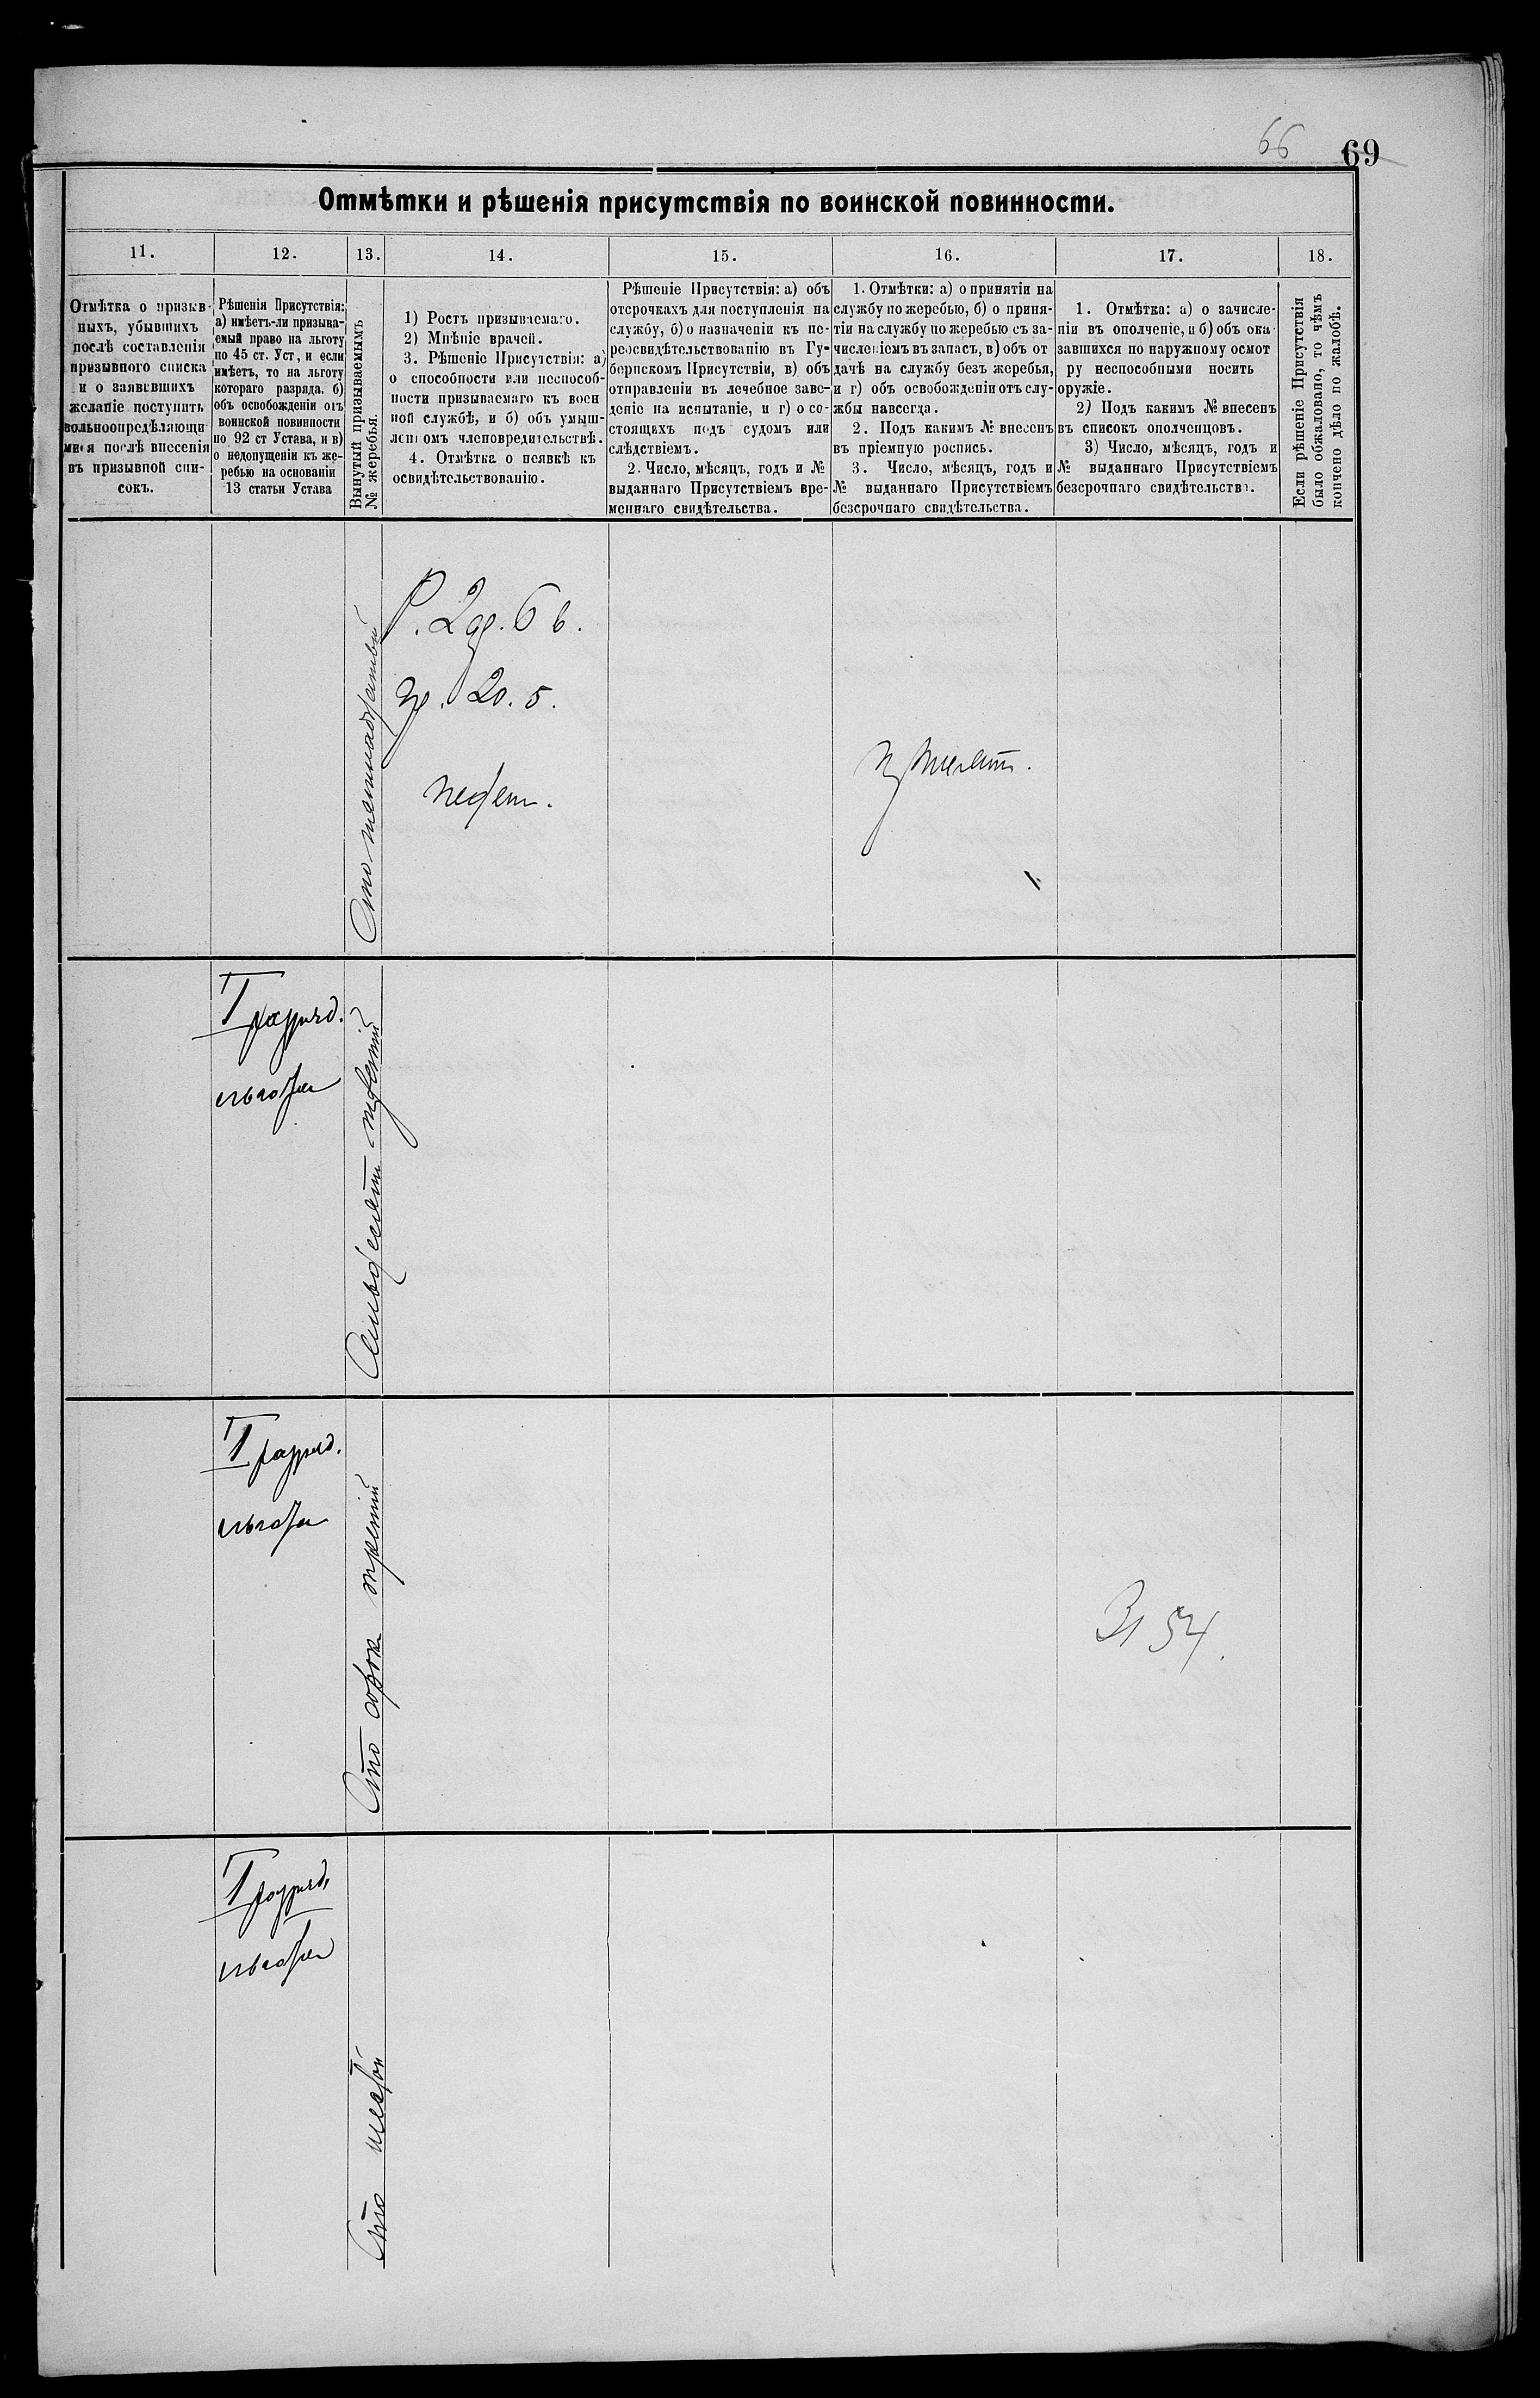 66 69
Отмѣтки и рѣшенія присутствія по воинской повинности.
11. 12. 13. 14. 15. 16. 17. 18.
Отмѣтка о призыв-
ныхъ, убывшихъ
послѣ составленія
призывного списка
и о заявившихъ
желаніе поступить
вольноопредѣляющи
мися послѣ внесенія
въ призывной спи-
сокъ.
Рѣшенія Присутствія:
а) имѣетъ-ли призыва-
емый право на льготу
по 45 ст. Уст, и если
имѣетъ, то на льготу
котораго разряда. б)
объ освобожденіи отъ
воинской повинности
по 92 ст Устава, и в)
о недопущеніи къ же-
ребью на основаніи
13 статьи Устава
Вынутый призываемымъ
№ жеребья.
1) Ростъ призываемаго.
2) Мнѣніе врачей.
3. Рѣшеніе Присутствія: а)
о способности или неспособ-
ности призываемаго къ воен
ной службѣ, и б) объ умыш-
ленномъ членовредительствѣ.
4. Отмѣтка о неявкѣ къ
освидѣтельствованію.
Рѣшеніе Присутствія: а) объ
отсрочкахъ для поступленія на
службу, б) о назначеніи къ пе-
реосвидѣтельствованію въ Гу-
бернскомъ Присутствіи, в) объ
отправленіи въ лечебное заве-
деніе на испытаніе, и г) о со-
стоящихъ подъ судомъ или
слѣдствіемъ.
2. Число, мѣсяцъ, годъ и №
выданнаго Присутствіемъ вре-
меннаго свидѣтельства.
1. Отмѣтки: а) о принятіи на
службу по жеребью, б) о приня-
тіи на службу по жеребью съ за-
численіемъ въ запасъ, в) объ от
дачѣ на службу безъ жеребья,
и г) объ освобожденіи отъ слу-
жбы навсегда.
2. Подъ какимъ № внесенъ
въ пріемную роспись.
3. Число, мѣсяцъ, годъ и
№ выданнаго Присутствіемъ
безсрочнаго свидѣтельства.
1. Отмѣтка: а) о зачисле-
ніи въ ополченіе, и б) объ ока
завшихся по наружному осмот
ру неспособными носить
оружіе.
2) Подъ какимъ № внесенъ
въ списокъ ополченцовъ.
3) Число, мѣсяцъ, годъ и
№ выданнаго Присутствіемъ
безсрочнаго свидѣтельства.
Если рѣшеніе Присутствія
было обжаловано, то чѣмъ
кончено дѣло по жалобѣ.
Р. 2 ар. 6 в.
гр. 20. 5.
Принят.
I разряд.
льгота
Семьдесят третій
I разряд.
льгота
Сто сорок третій
54
I разряд.
льгота
Сто шестой